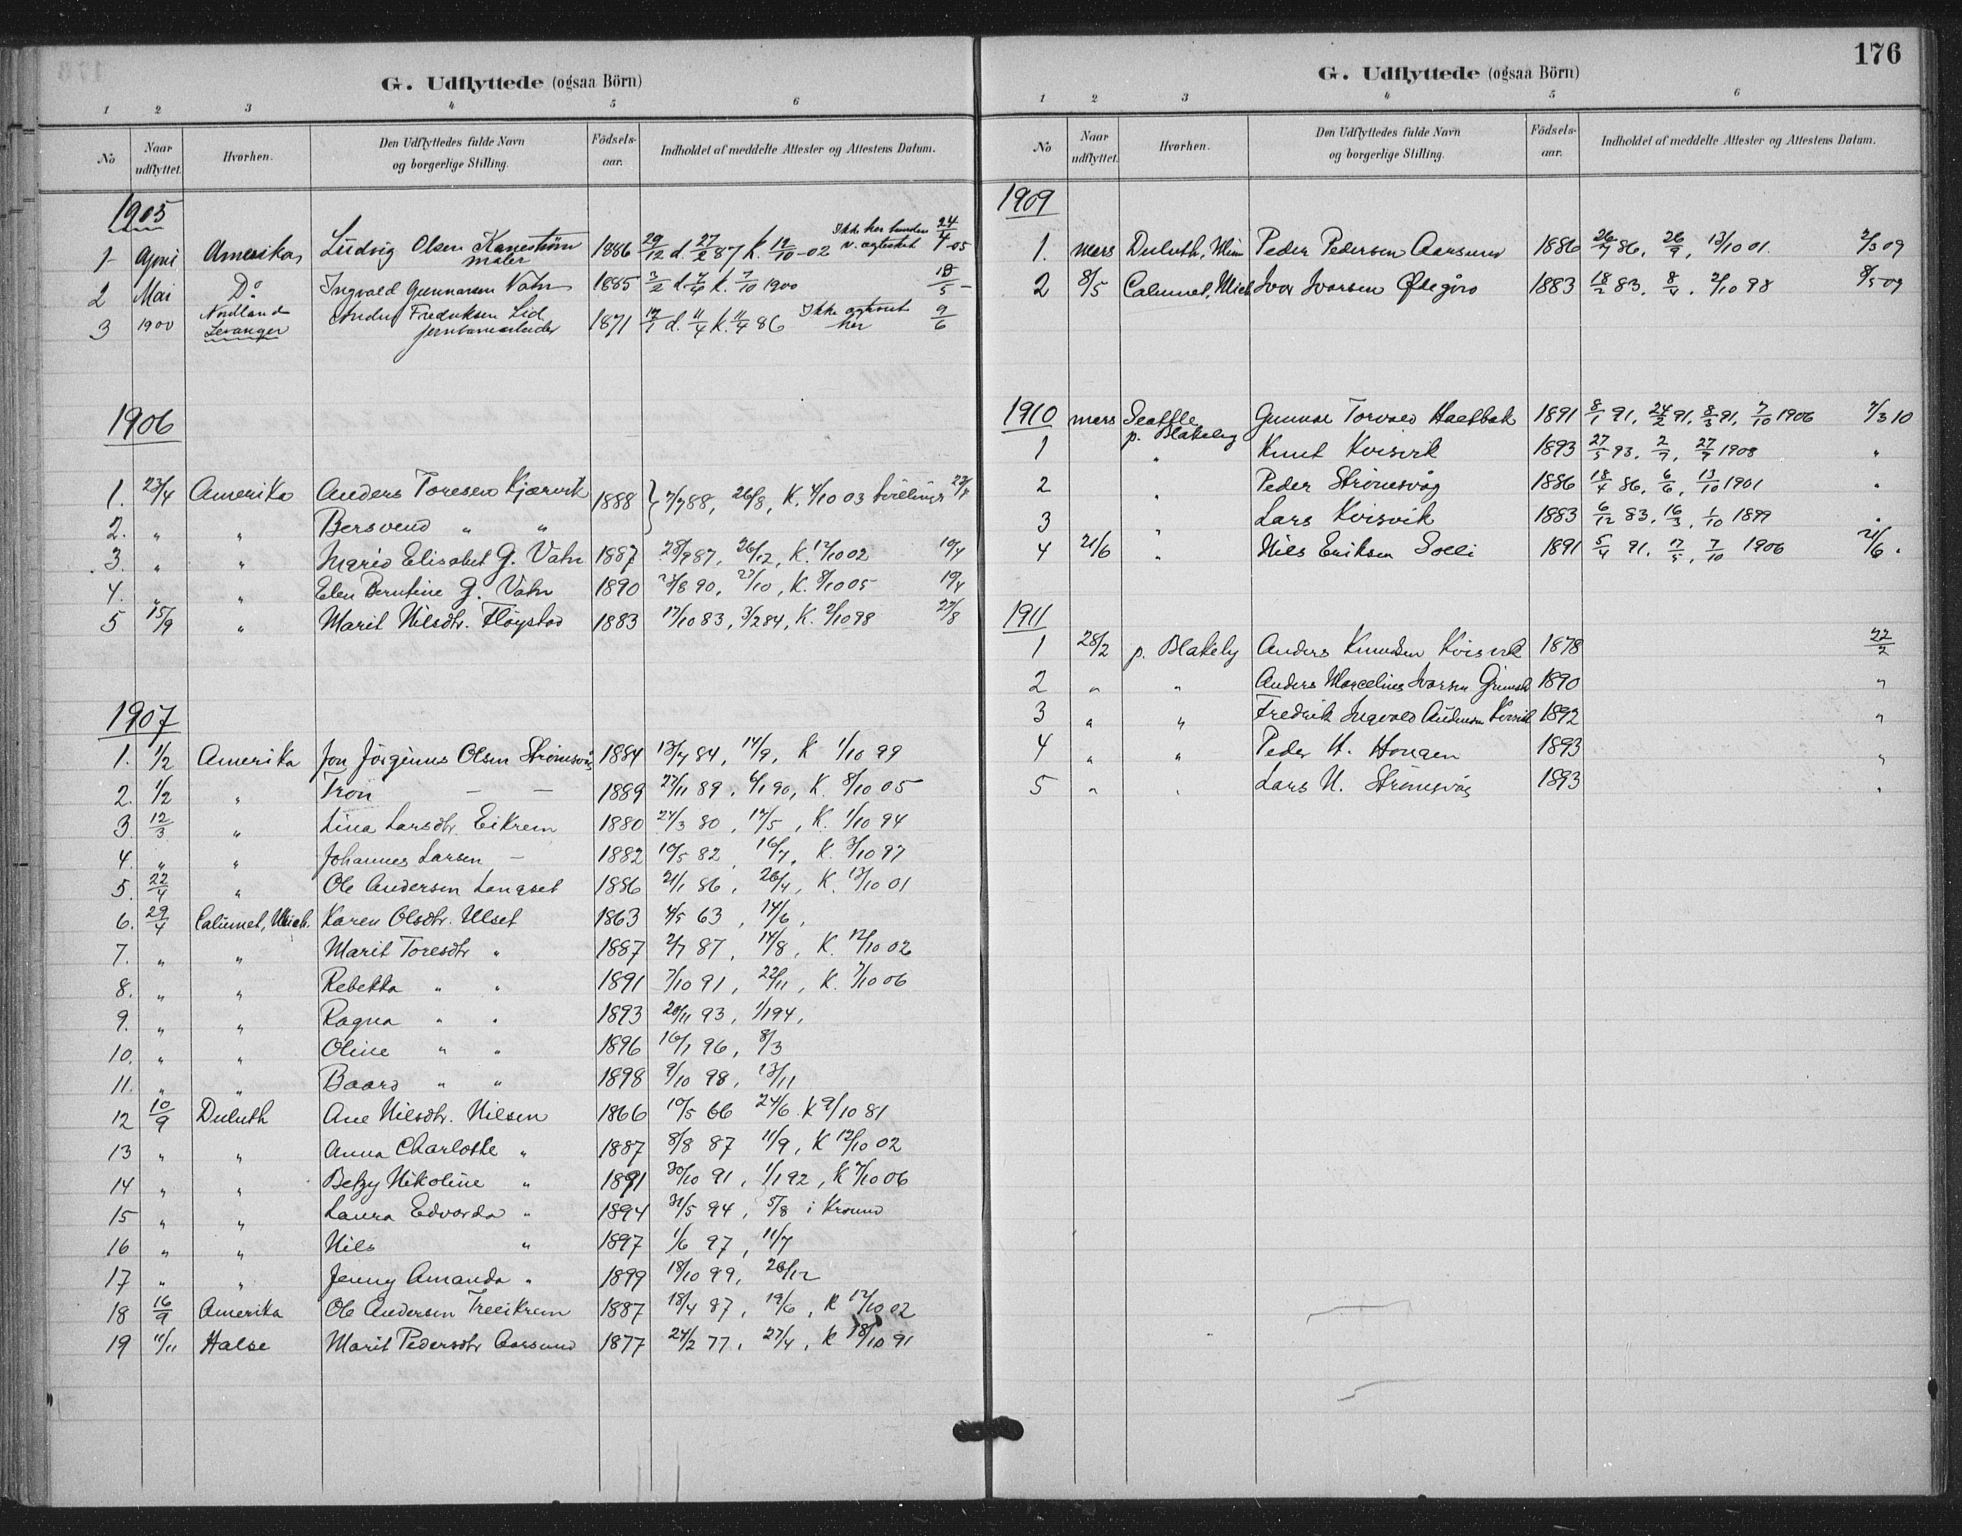 G. Udflyttede (ogsaa Börn)
1 2 3 4 5 6
No Naar udflyttet. Hvorhen. Den Udflyttedes fulde Navn og borgerlige Stilling. Födsels-aar. Indholdet af meddelte Attester og Attestens Datum.
1905
1 April Amerika Ludvig Olsen Kanestrøm maler 1886 29/12 d. 27/2 87 k. 12/10-02 Ikke her bunden v. ægteskab 24/4-05
2 Mai Do Ingvald Gunnarsen Vatn 1885 d. k. 7/10 1900 18/5 -
3 1900 Nordland Levanger Fredriksen Lid jernbanearbeider 1871 d. 11/4 k. 86 Ikke her 9/6
1906
1. 23/4 Amerika Anders Toresen Kjørvik 1888 7/7 88, 26/8, K. 4/10 03 tvillinger 23/4
2. " " Bersvend " "
3. " " Marie Elisabet G. Vatn 1887 28/9 87, 26/12, K. 12/10 02 19/4
4. " " Elen Berntine G. Vatn 1890 23/8 90, 27/10, K. 8/10 05 19/4
5 15/9 " Marit Nilsdtr. Fløystad 1883 17/10 83, 3/2 84, K. 2/10 98 27/8
1907
1. 1/2 Amerika Jon Jörginus Olsen Strömsvåg 1884 13/7 84, 14/9, K 1/10 99
2. 1/2 " Tron — — 1889 27/11 89, 6/1 90, K. 8/10 05
3. 12/3 " Lina Larsdtr. Eikrem 1880 24/3 80, 17/5, K. 1/10 94
4. " " Johannes Larsen — 1882 19/5 82, 16/7, K. 3/10 97
5. 22/4 " Ole Andersen Langset 1886 21/1 86, 26/4, K. 13/10 01
6. 29/4 Calumet, Mich. Karen Olsdtr. Ulset 1863 4/5 63, 14/6,
7. " " Marit Toresdtr " 1887 2/7 87, 14/8, K. 12/10 02
8. " " Rebekka " " 1891 7/10 91, 22/11, K. 7/10 06
9. " " Ragna " " 1893 20/11 93, 1/1 94,
10. " " Oline " " 1896 16/1 96, 8/3
11. " " Baard " " 1898 9/10 98, 13/11
12 10/9 Duluth Ane Nilsdtr. Nilsen 1866 10/5 66 24/6. K 9/10 81
13 " " Anna Charlotte " 1887 8/8 87 11/9, K 12/10 02
14 " " Betzy Nikoline " 1891 30/10 91, 1/1 92, K 7/10 06
15 " " Laura Edvarda " 1894 31/5 94, 5/8 i Kr.sund
16 " " Nils " 1897 1/6 97, 11/7
17 " " Jenny Amanda " 1899 18/10 99, 26/12
18 16/9 Amerika Ole Andersen Treeikrem 1887 18/4 87, 19/6, K 12/10 02
19 11/11 Halse Marit Pedersdtr Aarsund 1877 24/2 77, 27/4, K 18/10 91
176
G. Udflyttede (ogsaa Börn)
1 2 3 4 5 6
No Naar udflyttet. Hvorhen. Den Udflyttedes fulde Navn og borgerlige Stilling. Födsels-aar. Indholdet af meddelte Attester og Attestens Datum.
1909
1. mars Duluth, Minn Peder Pedersen Aarsund 1886 26/7 86, 26/9, 13/10 01. 2/3 09
2 8/5 Calumet, Mich Ivar Ivarsen 1883 18/2 83, 8/4, 2/10 98 8/5 09
1910 mars Seattle Gunnar Torvald 1891 8/1 91, 24/2 91, 8/3 91, 7/10 1906 7/3 10
1 p. Blakeley " Knut Kvisvik 1893 27/5 93, 2/7, 27/9 1908 "
2 " Peder Strømsvåg 1886 18/4 86, 6/6, 13/10 1901 "
3 " Lars Kvisvik 1883 6/12 83, 16/3, 1/10 1899 "
4 21/6 " Nils Eriksen Solli 1891 5/4 91, 17/5, 7/10 1906 21/6.
1911
1 28/2 p. Blakely Anders Knudsen Kvisvik 1878 22/2
2 " " Anders Marcelius Ivarsen 1890 "
3 " " Fredrik Ingvald Andersen Kvisvik 1892 "
4 " " Peder H. Hougen 1893 "
5 " " Lars N. Strömsvåg 1893 "